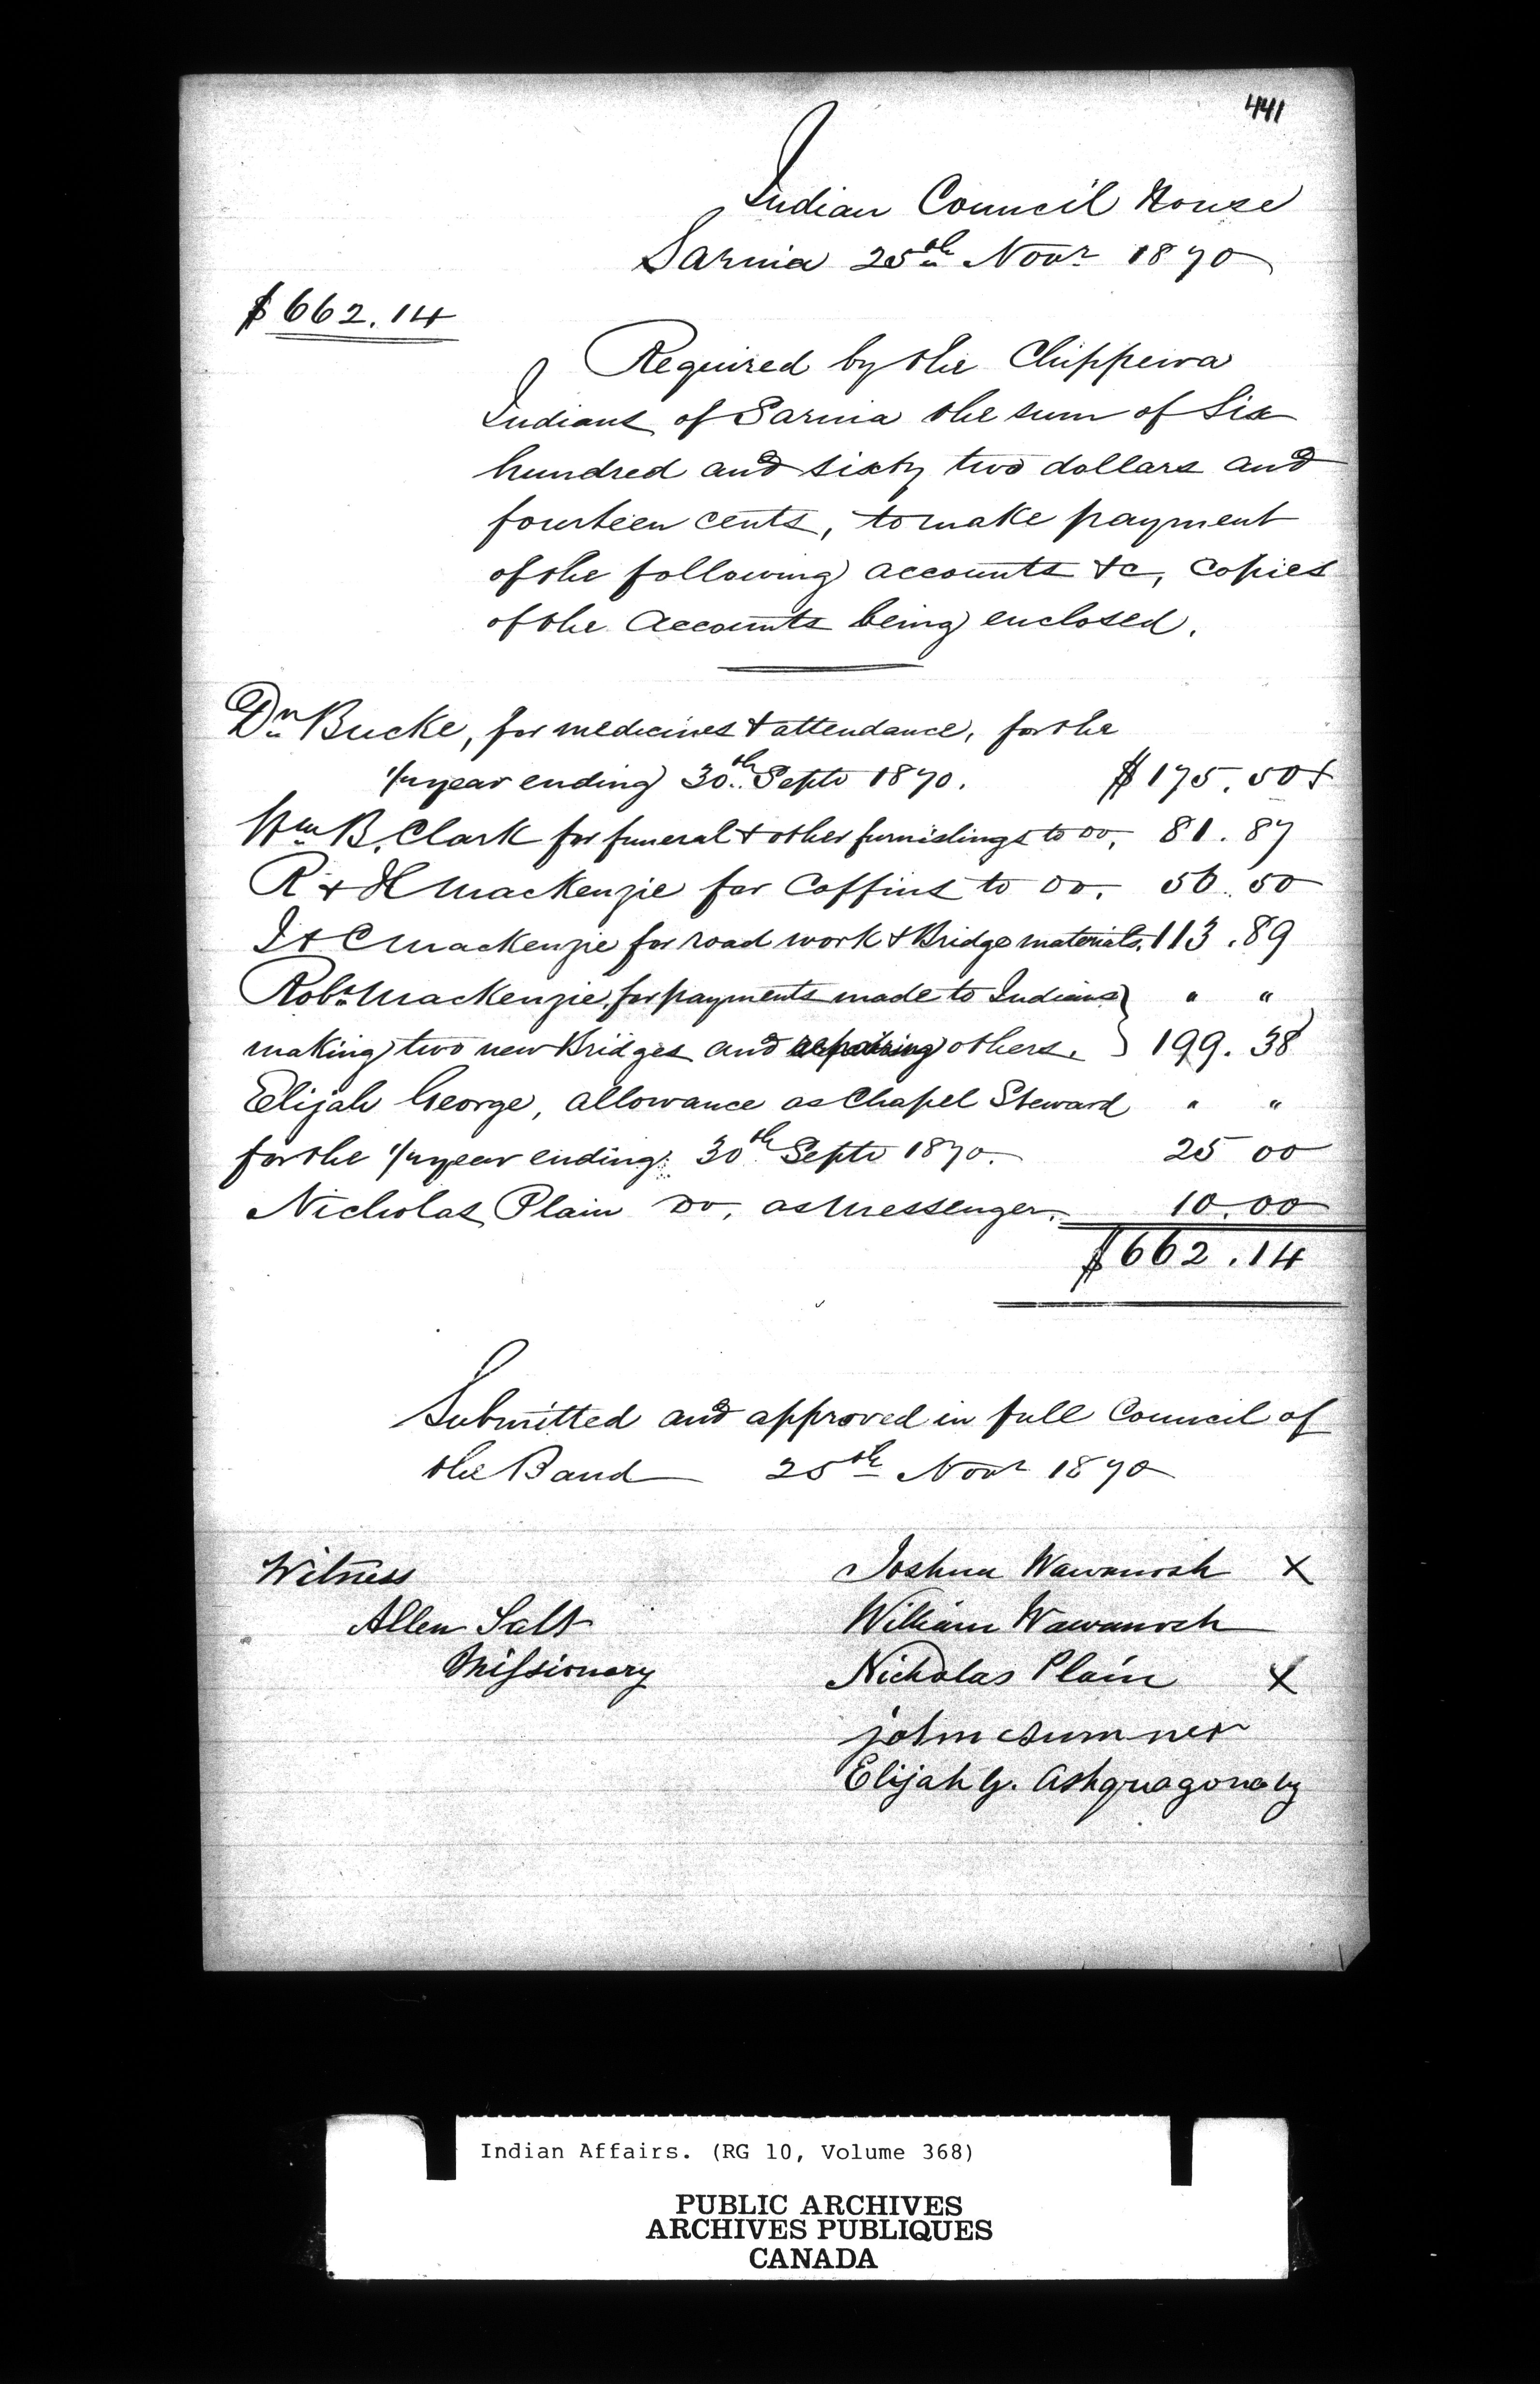 441
Indian Council House
Sarnia 25th Novr 1870
$662.14
Required by the Chippewa
Indians of Sarnia the sum of Six
hundred and sixty two dollars and
fourteen cents, to make payment
of the following accounts &c, copies
of the accounts being enclosed.
Dr Bucke, for medicines & attendance, for the
1/2 year ending 30th Septr 1870. $175.50
Wm B. Clark for funeral & other furnishings to do, 81.87
R & H Mackenzie for Coffins to do. 56.50
J & C Mackenzie for road work & Bridge materials. 113.89
Robt Mackenzie, for payments made to Indians } " "
making two new Bridges and repairing others. } 199.38
Elijah George, allowance as Chapel Steward " "
for the 1/2 year ending 30th Septr 1870. 25 00
Nicholas Plain Do, as Messenger. 10.00
$662.14
Submitted and approved in full Council of
the Band 25th Novr 1870
Witness
Allen Salt
Missionary
Joshua Wawanosh X
William Wawanosh
Nicholas Plain X
john sumner
Elijah G. Ashquagonaby
Indian Affairs. (RG 10, Volume 368)
PUBLIC ARCHIVES
ARCHIVES PUBLIQUES
CANADA